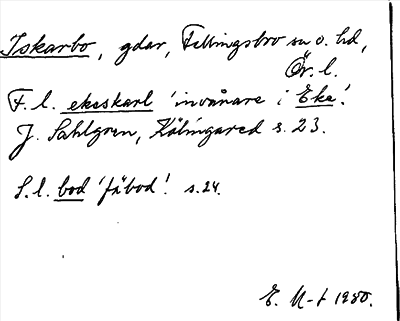 Iskarbo, gdar, Fellingsbro sn o. hd,
Ör. l.
F. l. ekeskarl 'invånare i Eke'.
J. Sahlgren, Kölingared s. 23.
S. l. bod 'fäbod'. s. 24.
E. M-t 1980.